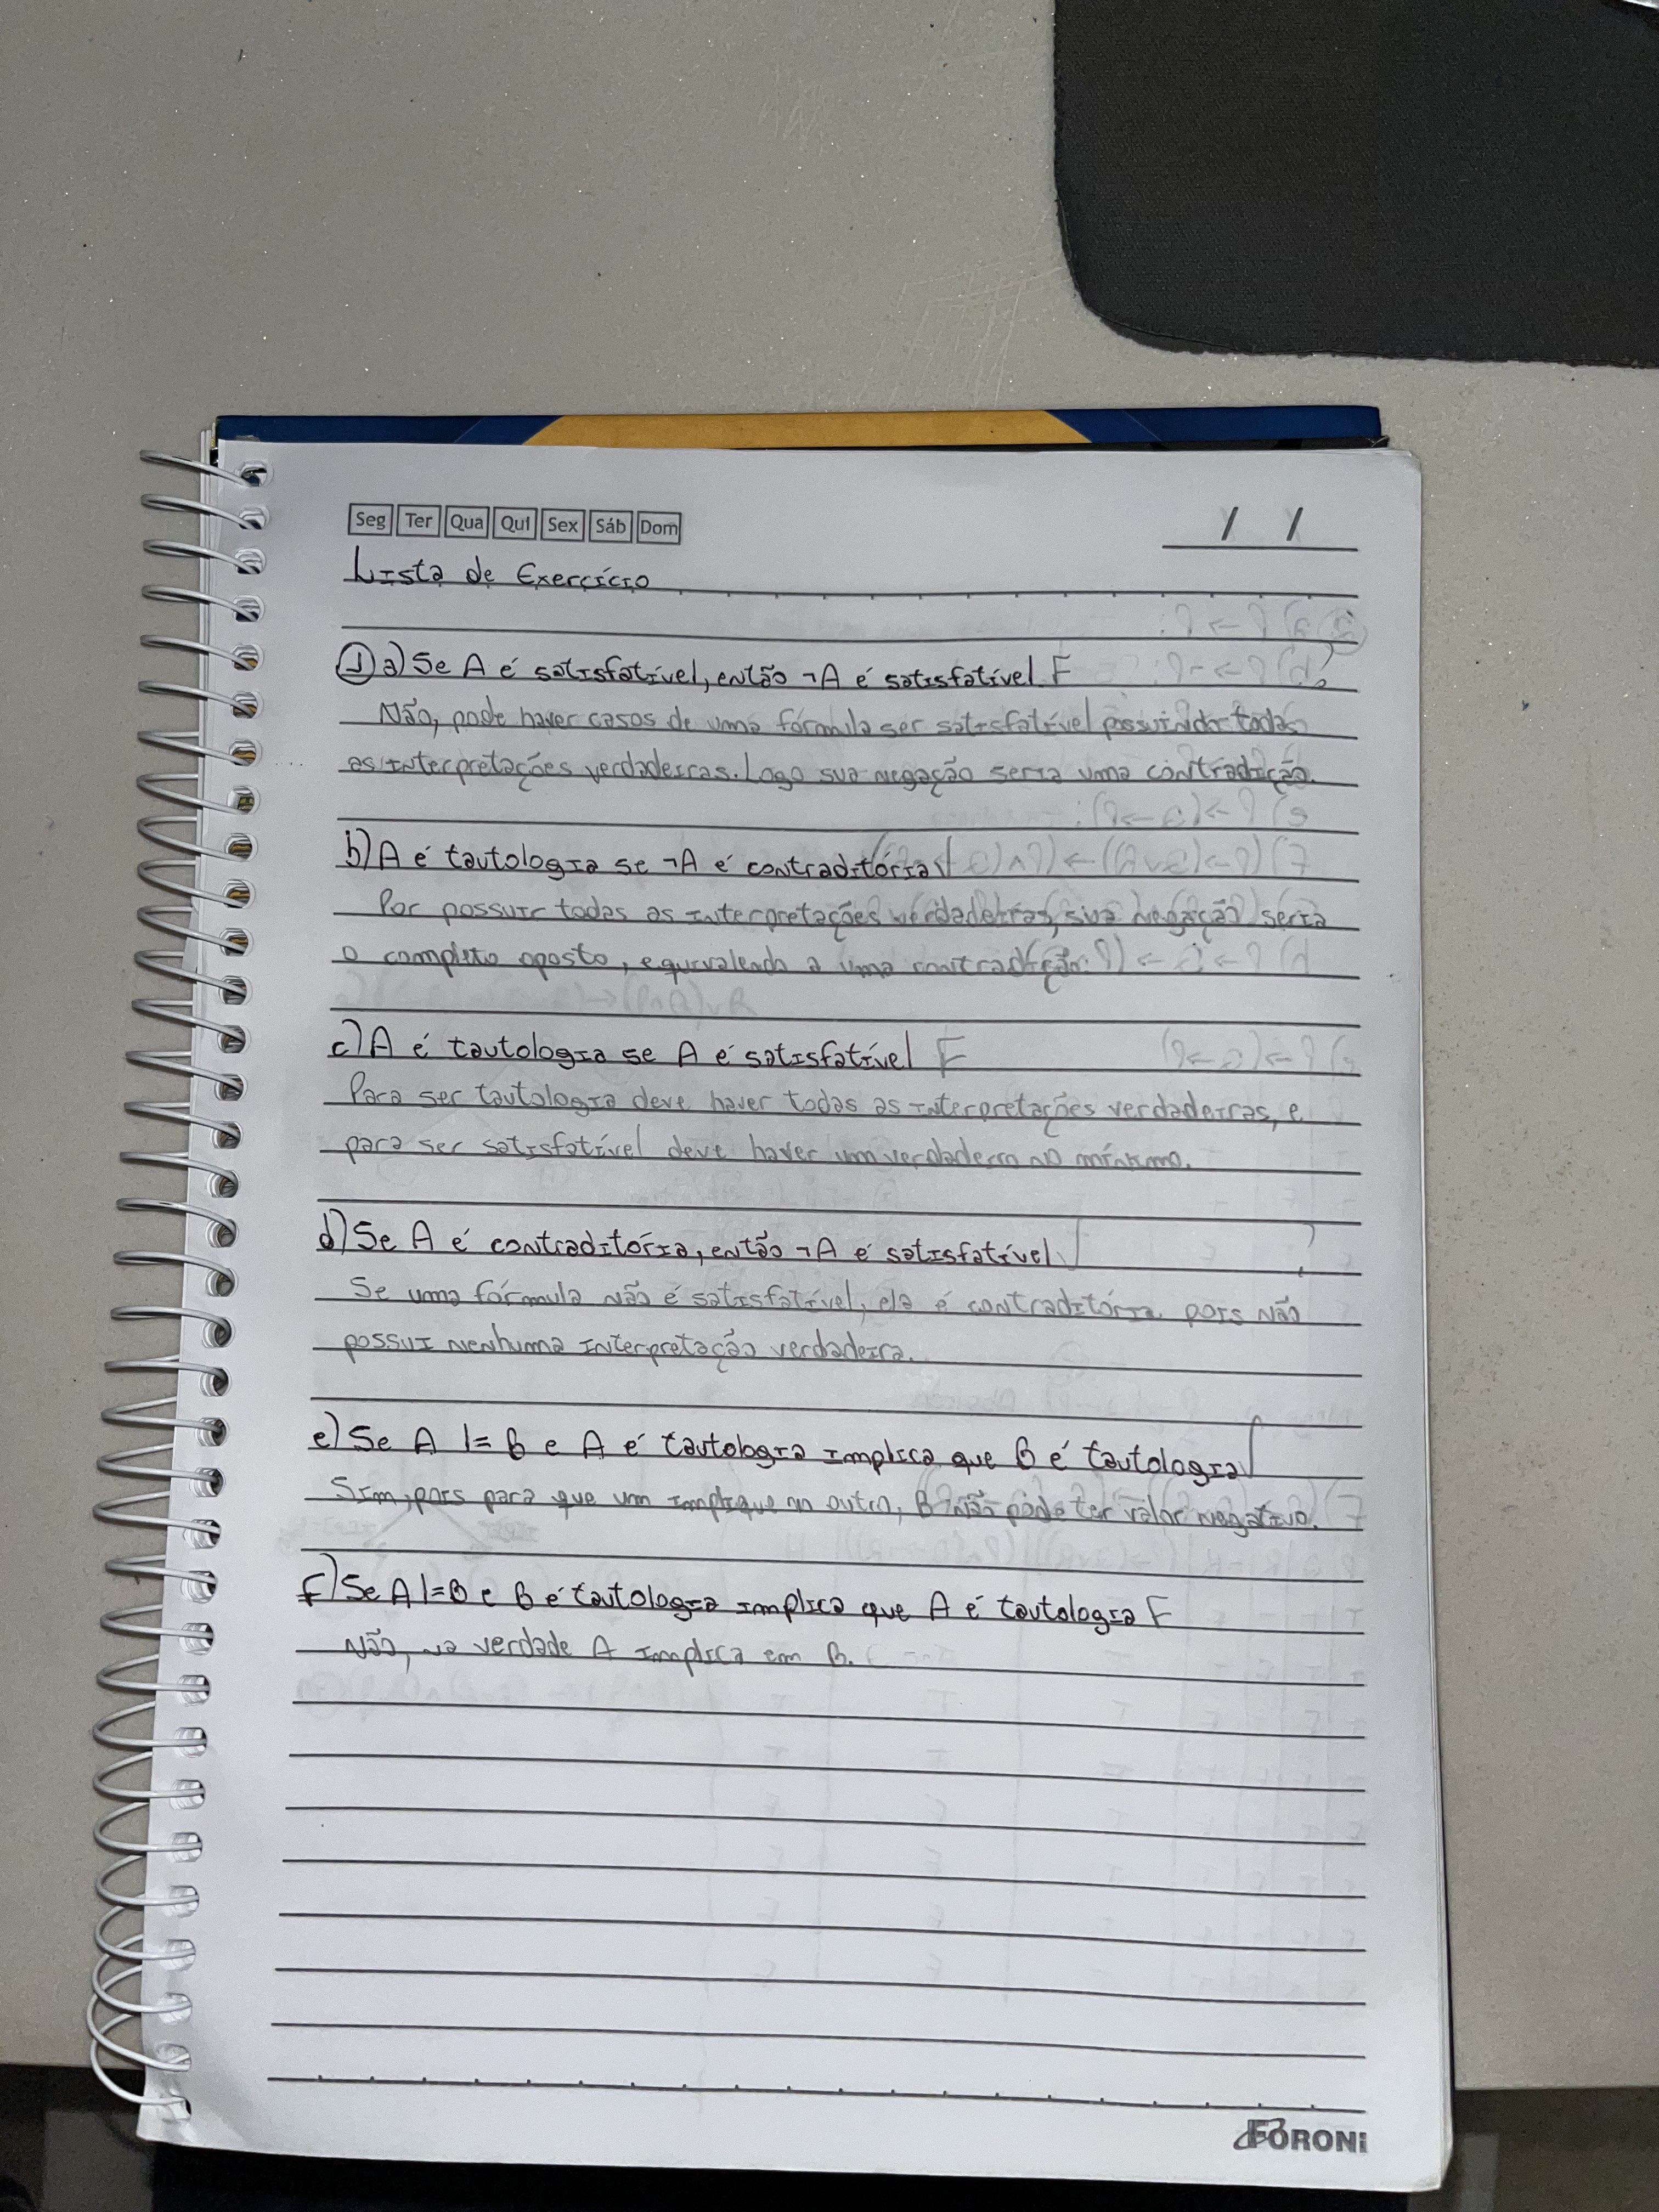 Seg Ter Qua Qui Sex Sáb Dom
/ /
Lista de Exercício
① a) Se A é satisfatível, então ¬A é satisfatível. F
Não, pode haver casos de uma fórmula ser satisfatível possuindo todas
as interpretações verdadeiras. Logo sua negação seria uma contradição.
b) A é tautologia se ¬A é contraditória
Por possuir todas as interpretações verdadeiras, sua negação seria
o completo oposto, equivalendo a uma contradição.
c) A é tautologia se A é satisfatível F
Para ser tautologia deve haver todas as interpretações verdadeiras, e
para ser satisfatível deve haver um verdadeiro no mínimo.
d) Se A é contraditória, então ¬A é satisfatível.
Se uma fórmula não é satisfatível, ela é contraditória. pois não
possui nenhuma interpretação verdadeira.
e) Se A |= B e A é tautologia implica que B é tautologia
Sim, pois para que um implique no outro, B não pode ter valor negativo.
f) Se A |= B e B é tautologia implica que A é tautologia F
Não, na verdade A implica em B.
FORONI